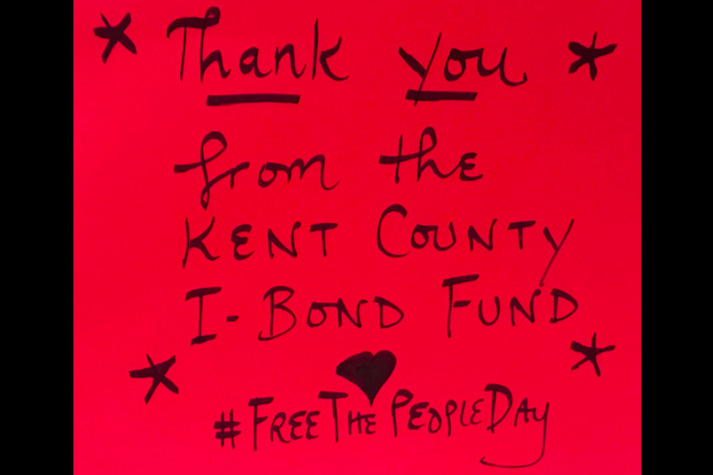 Thank you
from the
KENT COUNTY
I-BOND FUND
#FREETHEPEOPLEDAY